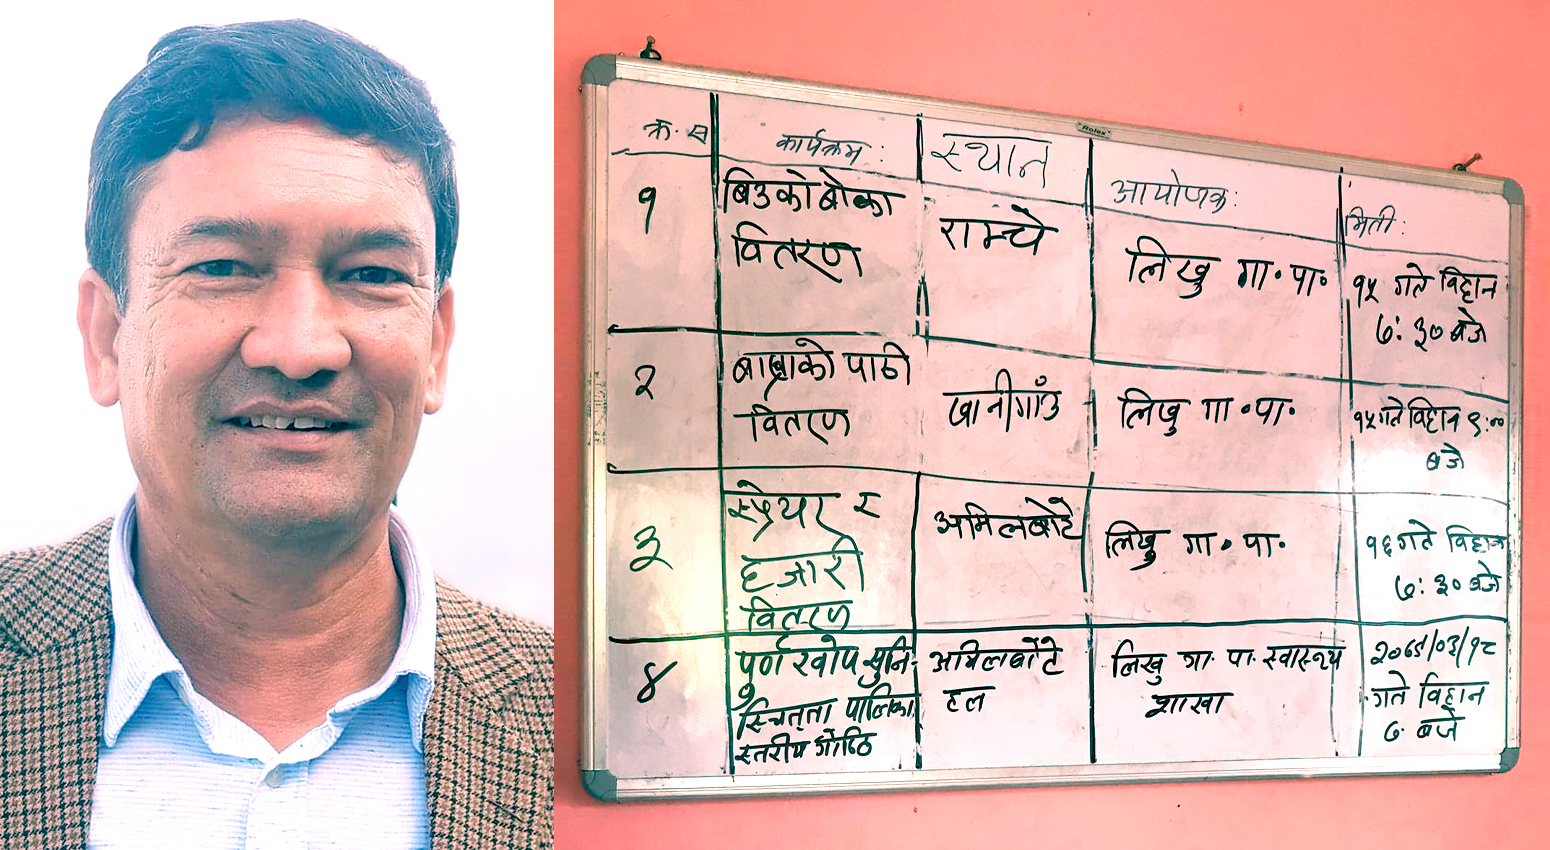 Rolex
क्र. स
कार्यक्रम:
स्थान
आयोजक:
मिती:
१
बिउको बोका
वितरण
राम्चे
लिखु गा॰पा॰
१५ गते विहान
७:३० बजे
२
बाख्राको पाठी
वितरण
खानीगाँउ
लिखु गा॰पा॰
१५ गते विहान ९:००
बजे
३
स्प्रेयर र
हजारी
वितरण
अमिलबोटे
लिखु गा॰पा॰
१६ गते विहान
७:३० बजे
४
पुर्ण खोप सुनि-
स्चितता पालिका
स्तरीय गोष्ठि
अमिलबोटे
हल
लिखु गा. पा. स्वास्थ्य
शाखा
२०७९/०३/१८
गते विहान
७ बजे